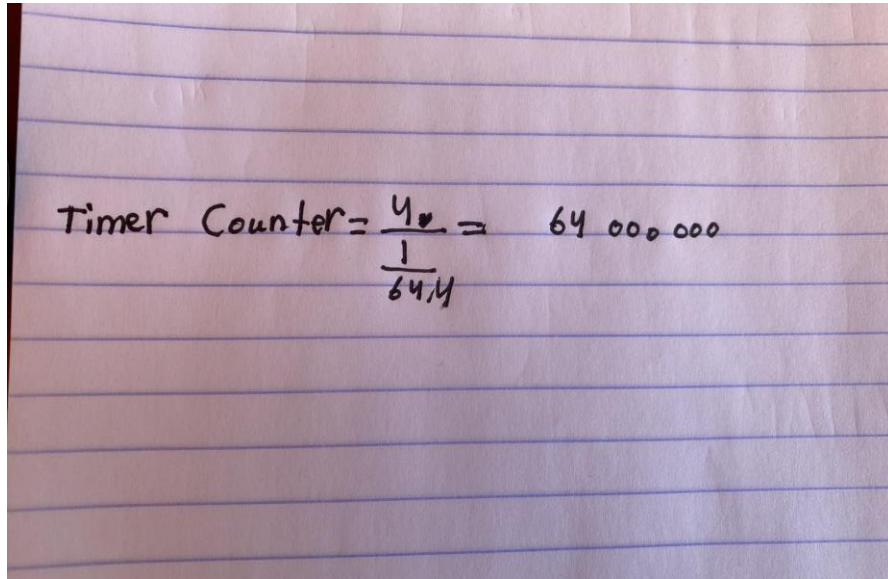 Timer Counter = 4 / (1 / 64,4) = 64 000 000